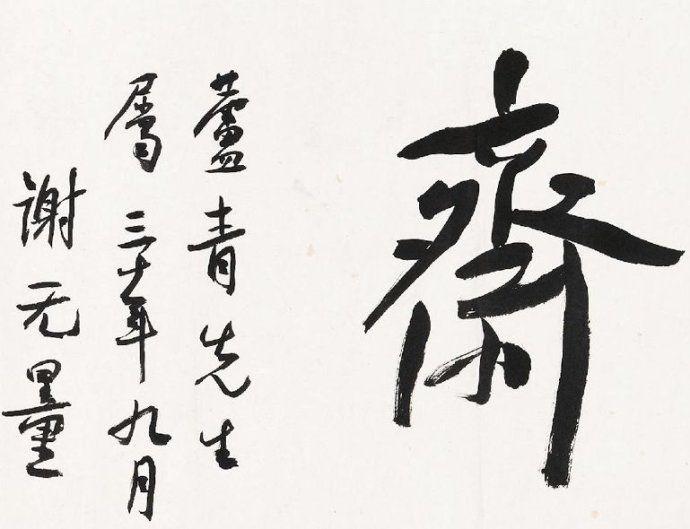 齋
蘆青先生
屬 三十年九月
谢无量